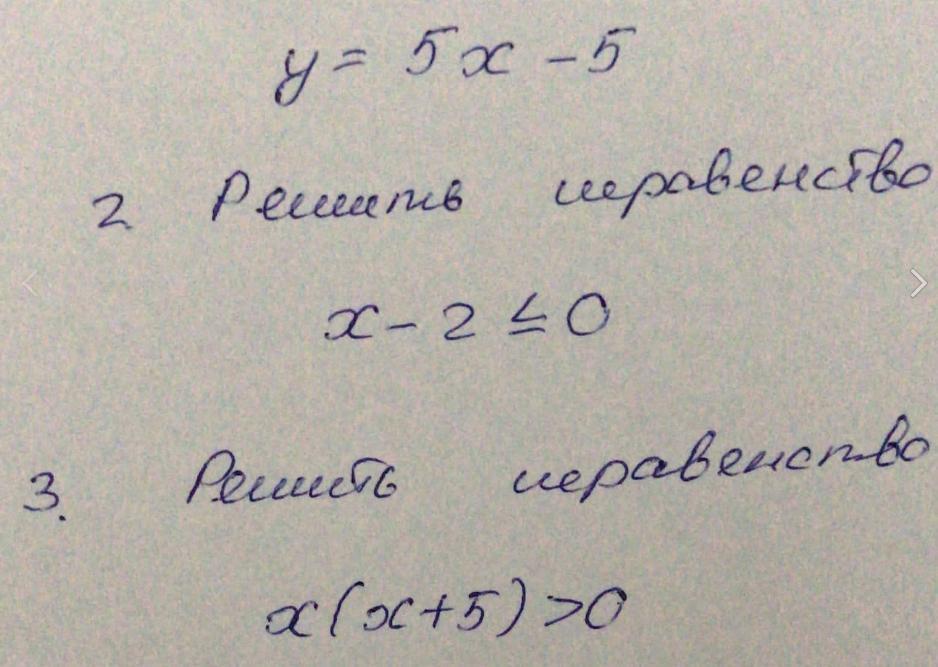 y = 5x - 5
2 Решить неравенство
x - 2 ≤ 0
3. Решить неравенство
x(x+5) >0